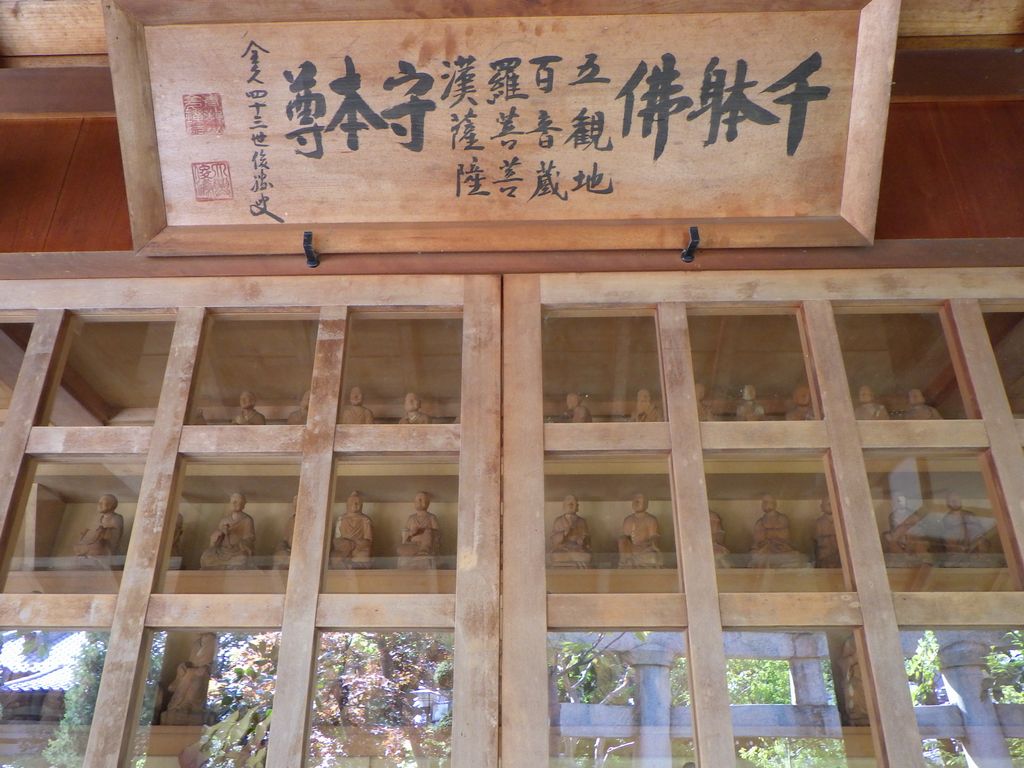 千躰佛
五百羅漢
観音菩薩
地蔵菩薩
守本尊
四十三世俊